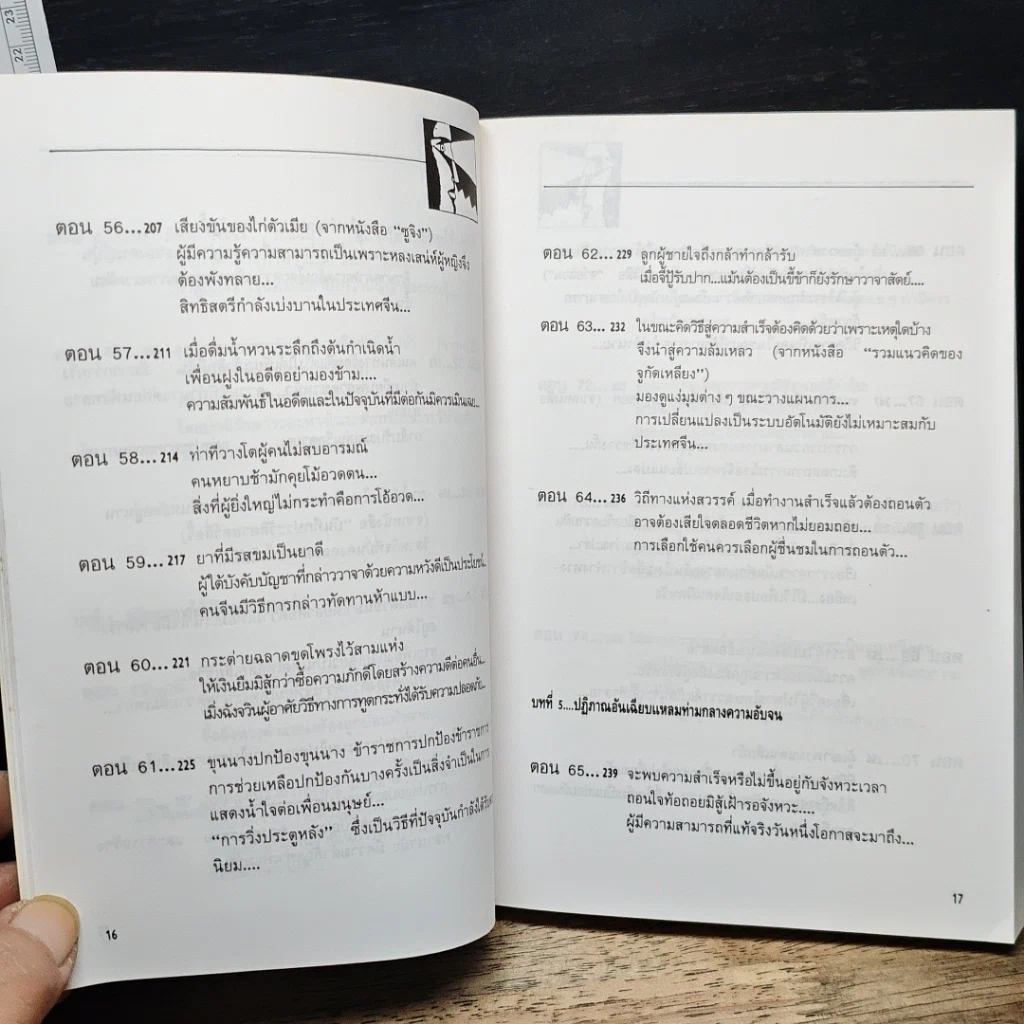 23
22
ตอน 56...207 เสียงขันของไก่ตัวเมีย (จากหนังสือ “ซูจิง”)
ผู้มีความรู้ความสามารถเป็นเพราะหลงเสน่ห์ผู้หญิงจึง
ต้องพังทลาย...
สิทธิสตรีกำลังเบ่งบานในประเทศจีน...
ตอน 57...211 เมื่อดื่มน้ำหวนระลึกถึงต้นกำเนิดน้ำ
เพื่อนฝูงในอดีตอย่ามองข้าม....
ความสัมพันธ์ในอดีตและในปัจจุบันที่มีต่อกันมิควรเมินเฉย...
ตอน 58...214 ท่าทีวางโตผู้คนไม่สบอารมณ์
คนหยาบช้ามักคุยโม้อวดตน...
สิ่งที่ผู้ยิ่งใหญ่ไม่กระทำคือการโอ้อวด...
ตอน 59...217 ยาที่มีรสขมเป็นยาดี
ผู้ใต้บังคับบัญชาที่กล่าววาจาด้วยความหวังดีเป็นประโยชน์...
คนจีนมีวิธีการกล่าวทัดทานห้าแบบ...
ตอน 60...221 กระต่ายฉลาดขุดโพรงไว้สามแห่ง
ให้เงินยืมมิสู้กว่าซื้อความภักดีโดยสร้างความดีต่อคนอื่น...
เมิ่งฉังจวินผู้อาศัยวิธีทางการทูตกระทั่งได้รับความปลอดภัย...
ตอน 61...225 ขุนนางปกป้องขุนนาง ข้าราชการปกป้องข้าราชการ
การช่วยเหลือปกป้องกันบางครั้งเป็นสิ่งจำเป็นในการ
แสดงน้ำใจต่อเพื่อนมนุษย์...
“การวิ่งประตูหลัง” ซึ่งเป็นวิธีที่ปัจจุบันกำลังได้รับค
นิยม....
16
ตอน 62...229 ลูกผู้ชายใจถึงกล้าทำกล้ารับ
เมื่อจี้ปู้รับปาก...แม้นต้องเป็นขี้ข้าก็ยังรักษาวาจาสัตย์....
ตอน 63...232 ในขณะคิดวิธีสู่ความสำเร็จต้องคิดด้วยว่าเพราะเหตุใดบ้าง
จึงนำสู่ความล้มเหลว (จากหนังสือ “รวมแนวคิดของ
จูกัดเหลียง”)
มองดูแง่มุมต่าง ๆ ขณะวางแผนการ...
การเปลี่ยนแปลงเป็นระบบอัตโนมัติยังไม่เหมาะสมกับ
ประเทศจีน...
ตอน 64...236 วิถีทางแห่งสวรรค์ เมื่อทำงานสำเร็จแล้วต้องถอนตัว
อาจต้องเสียใจตลอดชีวิตหากไม่ยอมถอย...
การเลือกใช้คนควรเลือกผู้ชื่นชมในการถอนตัว...
บทที่ 5....ปฏิภาณอันเฉียบแหลมท่ามกลางความอับจน
ตอน 65...239 จะพบความสำเร็จหรือไม่ขึ้นอยู่กับจังหวะเวลา
ถอนใจท้อถอยมิสู้เฝ้ารอจังหวะ....
ผู้มีความสามารถที่แท้จริงวันหนึ่งโอกาสจะมาถึง...
17